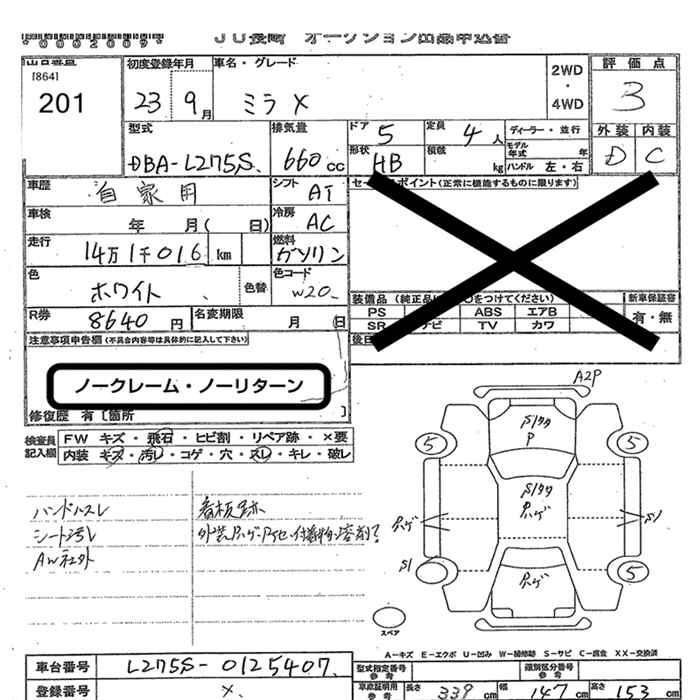 *0002009*
JU長崎 オークション出品申込書
[864]
201
初度登録年月 車名・グレード
23 9月 ミラ X
2WD
・
4WD
評価点
3
外装 内装
D C
型式 排気量
DBA-L275S 660cc
ドア 5 定員 4人
ディーラー・並行
形状 HB 積載 kg
モデル年式 年
ハンドル 左・右
車歴 自家用 シフト AT
車検 年 月( 日) 冷房 AC
走行 14万1千016 km 燃料 ガソリン
色 ホワイト 色替 色コード W20
R券 8640円 名変期限 月 日
ポイント(正常に機能するものに限ります)
装備品 (純正品 をつけてください) 新車保証書
PS ABS エアB 有・無
SR ナビ TV カワ
後日
注意事項申告欄(不具合内容等は具体的に記入して下さい)
ノークレーム・ノーリターン
修復歴 有〔箇所 〕
検査員記入欄
FW キズ・飛石・ヒビ割・リペア跡・×要
内装 キズ・汚レ・コゲ・穴・スレ・キレ・破レ
ハンドルスレ
シート汚レ
AW社外
看板跡
A2P
5 5
5
S1
スペア
A-キズ E-エクボ U-凹み W-補修跡 S-サビ C-腐食 XX-交換済
車台番号 L275S-0125407
登録番号 X
型式指定番号 参考 類別区分番号 参考
車庫証明用 参考 長さ 339cm 幅 147cm 高さ 153cm